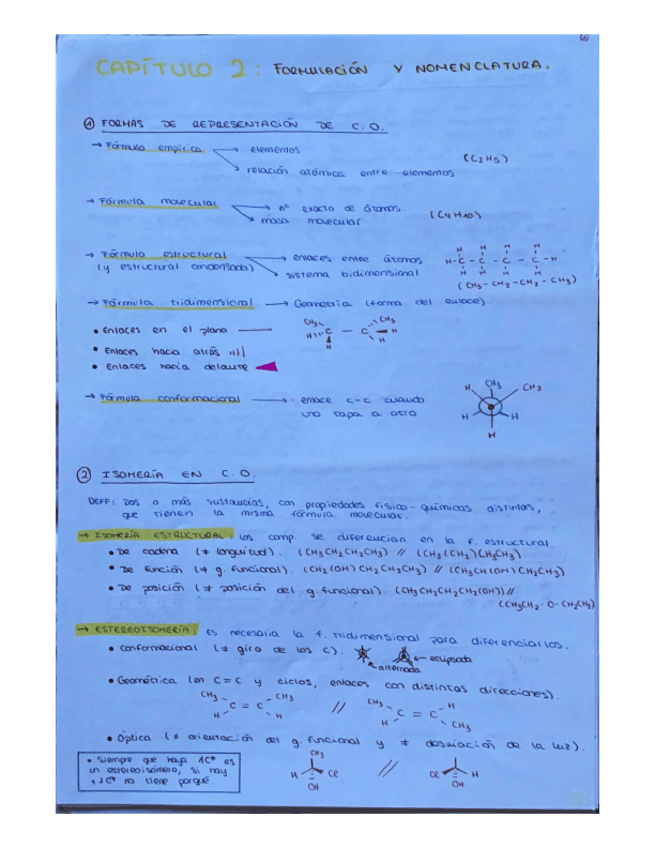 CAPÍTULO 2: FORMULACIÓN Y NOMENCLATURA.
① FORMAS DE REPRESENTACIÓN DE C.O.
→ Fórmula empírica → elementos
→ relación atómica entre elementos (C2H5)
→ Fórmula molecular → nº exacto de átomos
→ masa molecular (C4H10)
→ Fórmula estructural → enlaces entre átomos
(y estructural condensada) → sistema bidimensional
H H H H
H-C-C-C-C-H
H H H H
(CH3-CH2-CH2-CH3)
→ Fórmula tridimensional → Geometría (forma del enlace)
• Enlaces en el plano
• Enlaces hacia atrás
• Enlaces hacia delante
CH3 CH3
H C — C H
H H
→ Fórmula conformacional → enlace C-C cuando
uno tapa a otro
H CH3 CH3
H H
H
② ISOMERÍA EN C.O.
DEFF: Dos o más sustancias, con propiedades físico-químicas distintas,
que tienen la misma fórmula molecular.
→ ISOMERÍA ESTRUCTURAL: los comp. se diferencian en la f. estructural.
• De cadena (≠ longuitud). (CH3CH2CH2CH3) // (CH3(CH3)CH3CH3)
• De función (≠ g. funcional). (CH2(OH)CH2CH2CH3) // (CH3CH(OH)CH2CH3)
• De posición (≠ posición del g. funcional). (CH3CH2CH2CH2(OH)) //
(CH3CH2-O-CH2CH3)
→ ESTEREOISOMERÍA: es necesaria la f. tridimensional para diferenciarlos.
• Conformacional (≠ giro de los C). ← alternada ← eclipsada
• Geométrica (en C=C y ciclos, enlaces con distintas direcciones).
CH3 CH3 CH3 H
C = C // C = C
H H H CH3
• Óptica (≠ orientación del g. funcional y ≠ desviación de la luz).
• Siempre que haya 1C* es
un estereoisómero, si hay
+1C* no tiene porqué.
CH3
H Cl // Cl H
OH OH